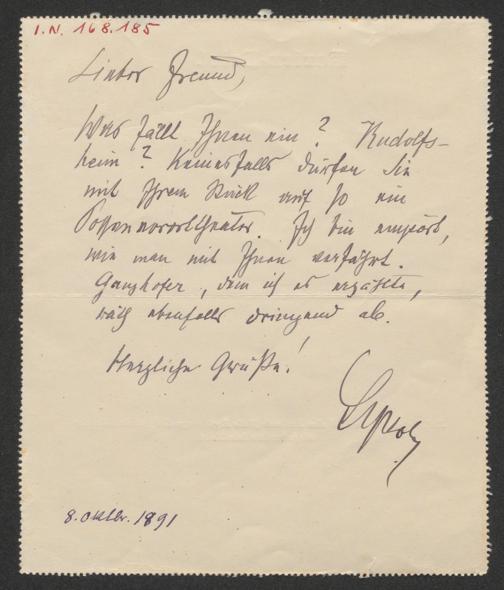 I.N. 168.185
Lieber Freund,
Was fällt Ihnen ein? Rudolfs-
heim? Keinesfalls dürfen Sie
mit Ihrem Stück auf so ein
Possenvorortheater. Ich bin empört,
wie man mit Ihnen verfährt.
Ganghofer, dem ich es erzählte,
räth ebenfalls dringend ab.
Herzliche Grüße!
8. Oktbr. 1891